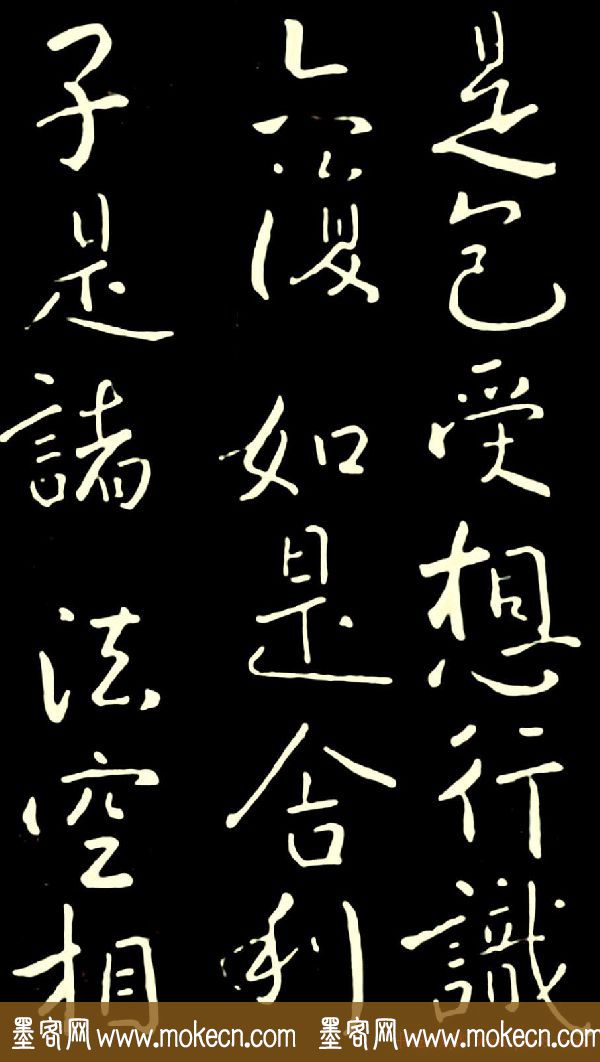 是色受想行識
亦復如是舍利
子是諸法空相
墨客网 www.mokecn.com 墨客网 www.mokecn.com